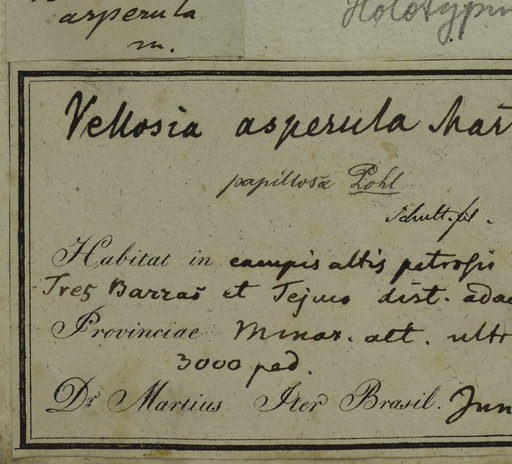 asperula
m.
Holotypu
Vellosia asperula Mart
papillosa Pohl
Schult. fil.
Habitat in campis altis petrosis
Tres Barras et Tejuco dist. adam
Provinciae Minar. alt. ultr
3000 ped.
Dr Martius Iter Brasil. Jun